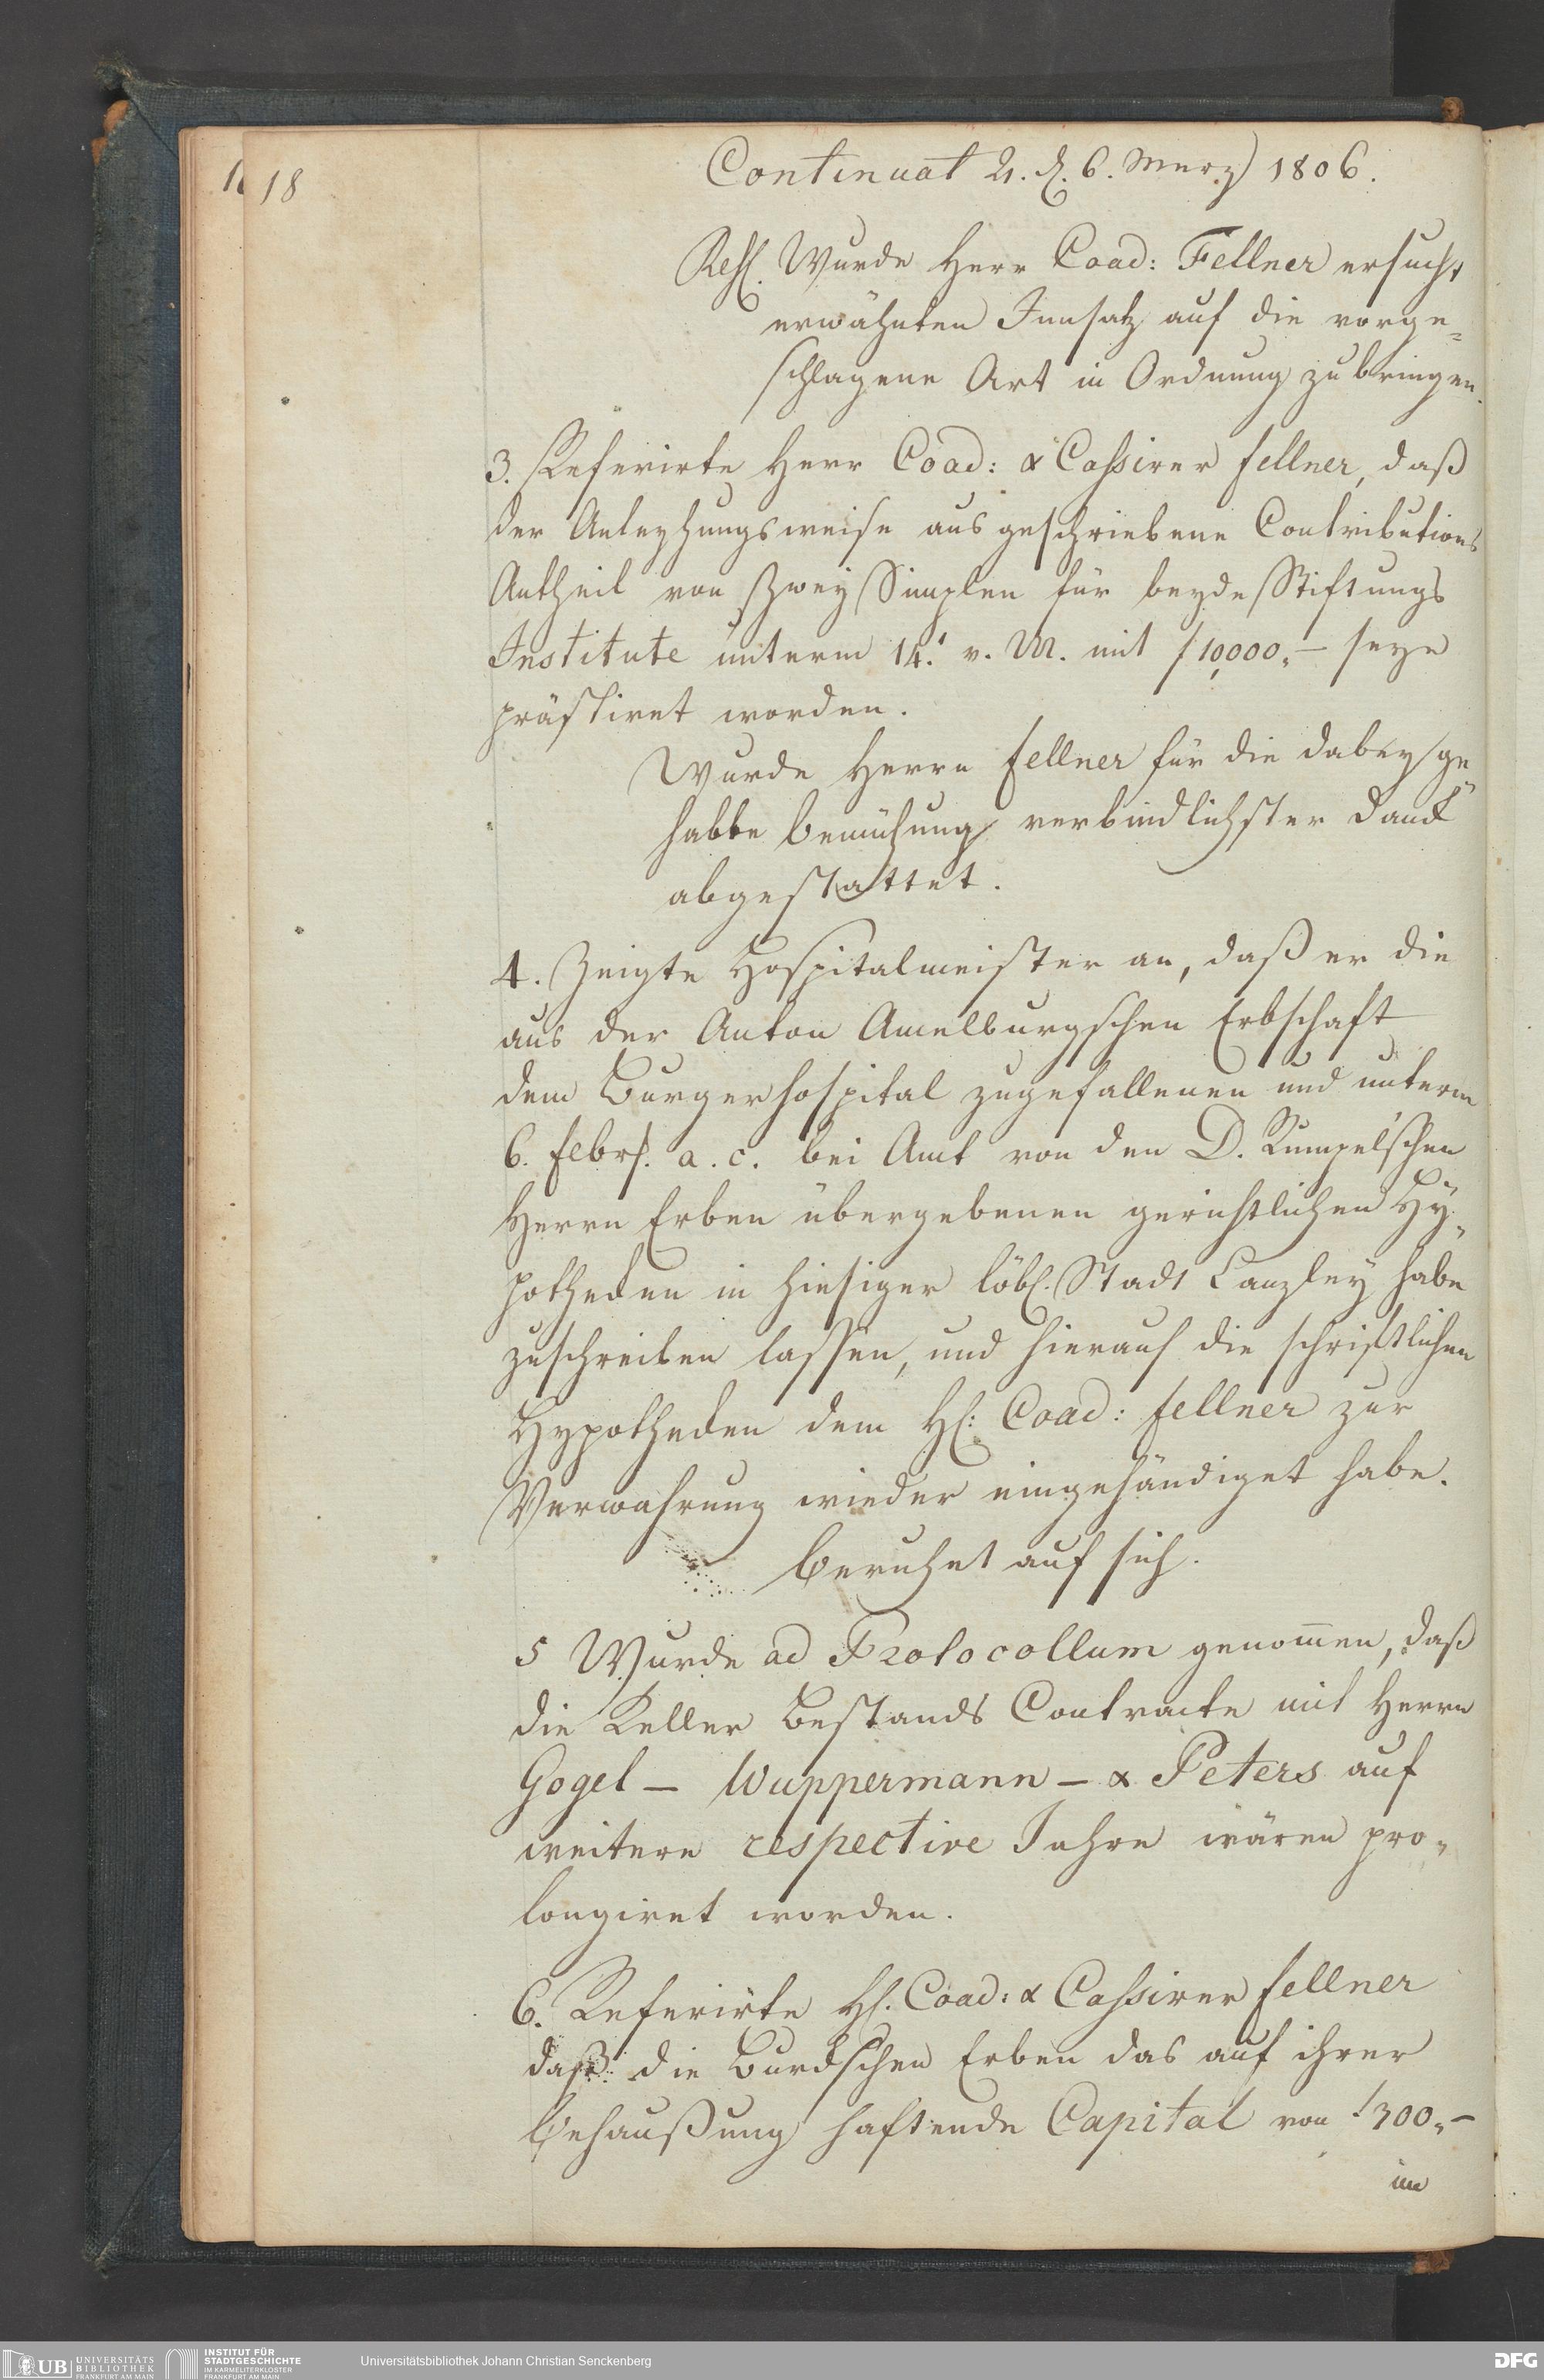 18
Continuat 2. d. 6. Merz 1806.
Resl. Wurde Herr Coad: Fellner ersucht
erwähnten Innsatz auf die vorge=
schlagene Art in Ordnung zu bringen.
3. Referirte Herr Coad: & Cassirer Fellner, daß
der Anleyhungsweise ausgeschriebene Contributions
Antheil von Zwey Simplen für beyde Stiftungs
Institute unterm 14.t v. M. mit f 10,000,,– seye
prästiret worden.
Wurde Herrn Fellner für die dabey ge„
habte Bemühung verbindlichster Danck
abgestattet.
4. Zeigte Hospitalmeister an, daß er die
aus der Anton Amelburgschen Erbschaft
dem Burgerhospital zugefallenen und unterm
6. Febr. a. c. bei Amt von den D. Rumpel'schen
Herrn Erben übergebenen gerichtlichen Hy„
potheken in hiesiger löbl. Stadt Canzley habe
zuschreiben lassen, und hierauf die schriftlichen
Hypotheken dem H: Coad: Fellner zur
Verwahrung wieder eingehändiget habe.
Beruhet auf sich.
5 Wurde ad Protocollum genommen, daß
die Keller Bestands Contracte mit Herrn
Gogel – Wuppermann – & Peters auf
weitere respective Jahre wären pro„
longiret worden.
6. Referirte H. Coad: & Cassirer Fellner
daß die Burckschen Erben das auf ihrer
Behaußung haftende Capital von f 300,,–
im
UB UNIVERSITÄTS
BIBLIOTHEK
FRANKFURT AM MAIN
INSTITUT FÜR
STADTGESCHICHTE
IM KARMELITERKLOSTER
FRANKFURT AM MAIN
Universitätsbibliothek Johann Christian Senckenberg
DFG